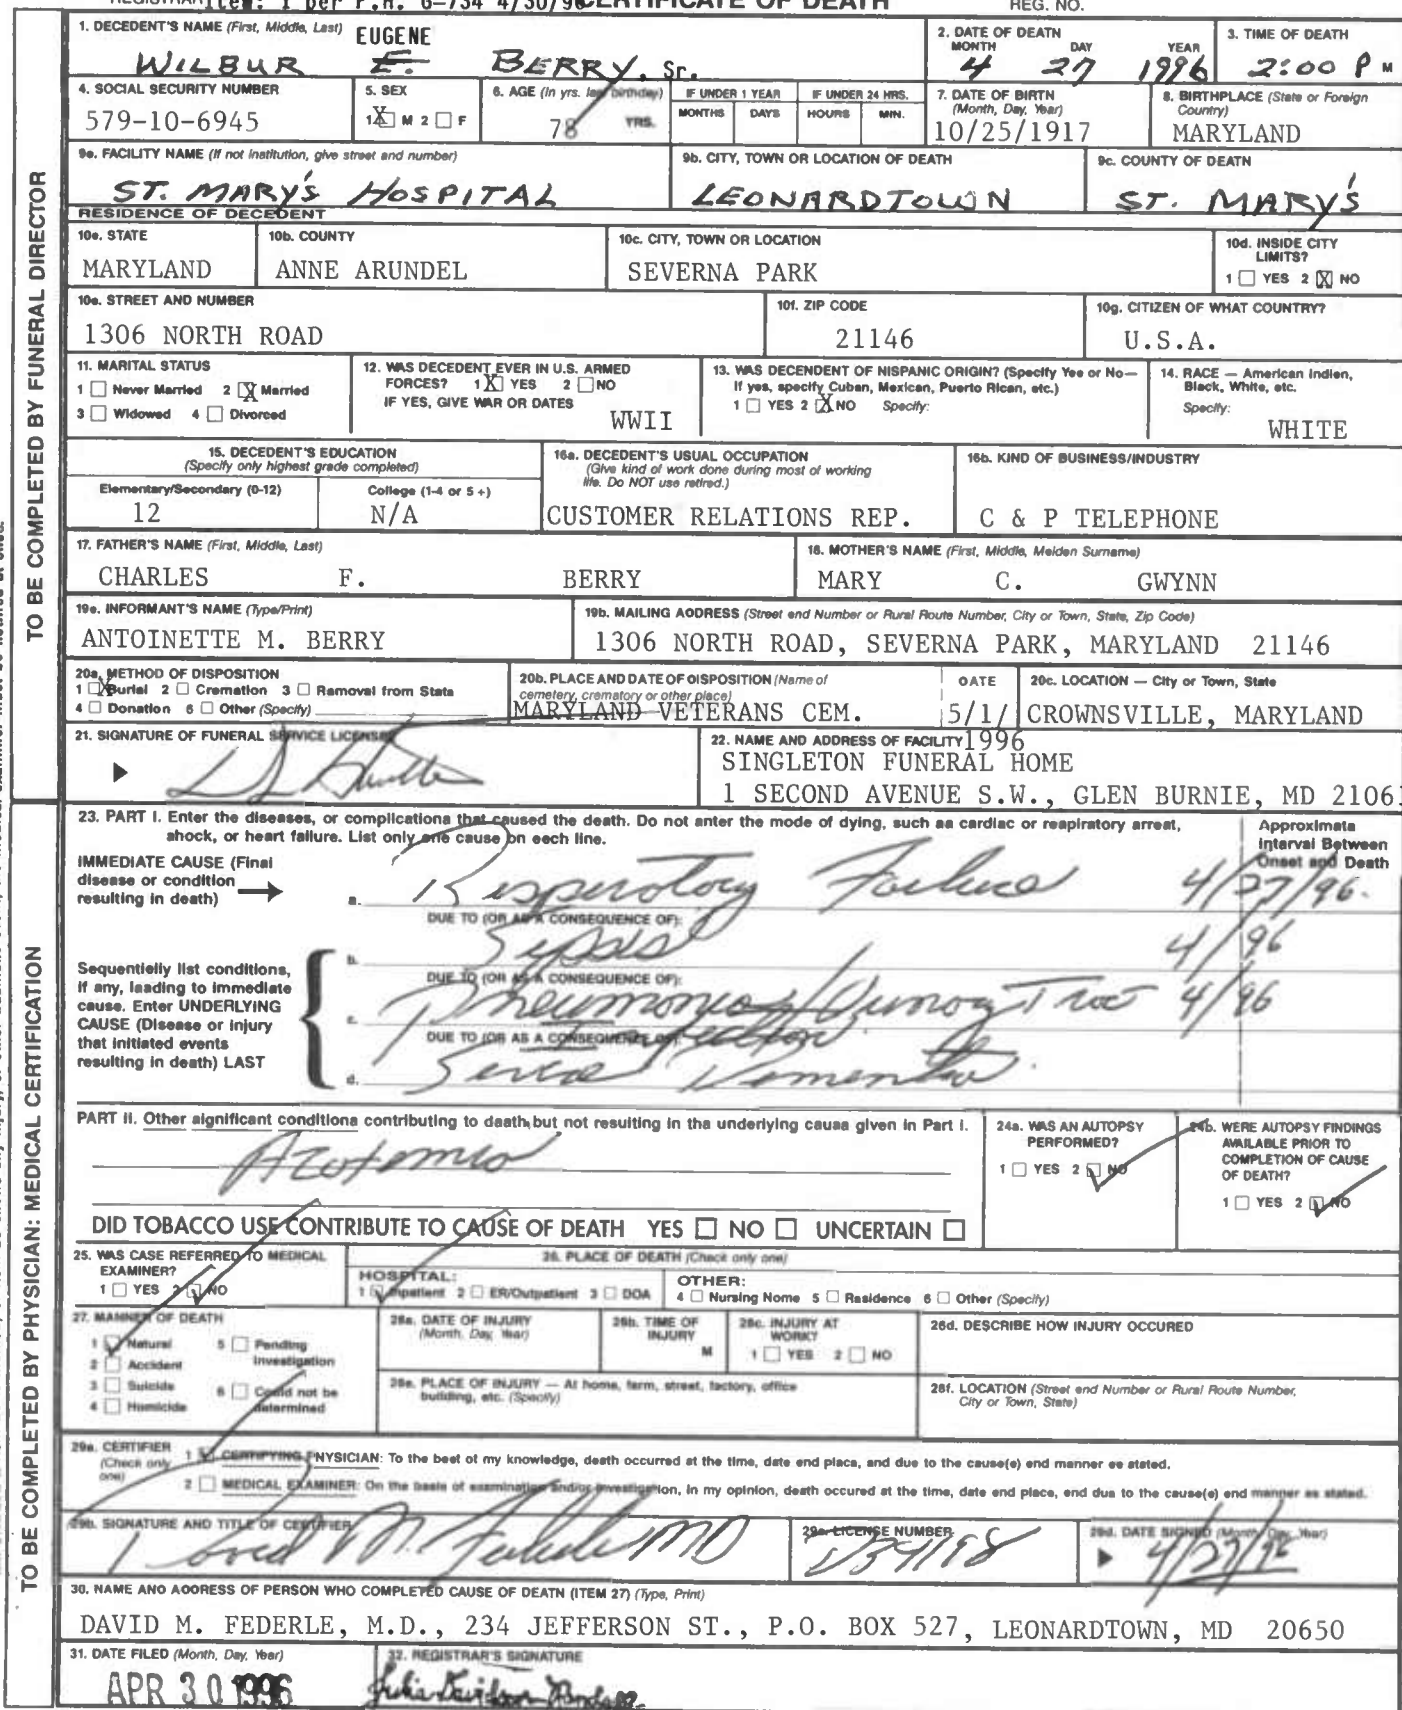 Item: 1 per F.H. G-734 4/30/96 CERTIFICATE OF DEATH REG. NO.
TO BE COMPLETED BY FUNERAL DIRECTOR
1. DECEDENT'S NAME (First, Middle, Last) EUGENE
WILBUR E. BERRY, Sr.
2. DATE OF DEATH
MONTH DAY YEAR
4 27 1996
3. TIME OF DEATH
2:00 P M
4. SOCIAL SECURITY NUMBER
579-10-6945
5. SEX
1 X M 2 F
6. AGE (In yrs. last birthday)
78 YRS.
IF UNDER 1 YEAR
MONTHS DAYS
IF UNDER 24 HRS.
HOURS MIN.
7. DATE OF BIRTH
(Month, Day, Year)
10/25/1917
8. BIRTHPLACE (State or Foreign
Country)
MARYLAND
9a. FACILITY NAME (If not institution, give street and number)
ST. MARY'S HOSPITAL
9b. CITY, TOWN OR LOCATION OF DEATH
LEONARDTOWN
9c. COUNTY OF DEATH
ST. MARY'S
RESIDENCE OF DECEDENT
10a. STATE
MARYLAND
10b. COUNTY
ANNE ARUNDEL
10c. CITY, TOWN OR LOCATION
SEVERNA PARK
10d. INSIDE CITY
LIMITS?
1 YES 2 X NO
10e. STREET AND NUMBER
1306 NORTH ROAD
10f. ZIP CODE
21146
10g. CITIZEN OF WHAT COUNTRY?
U.S.A.
11. MARITAL STATUS
1 Never Married 2 X Married
3 Widowed 4 Divorced
12. WAS DECEDENT EVER IN U.S. ARMED
FORCES? 1 X YES 2 NO
IF YES, GIVE WAR OR DATES
WWII
13. WAS DECENDENT OF HISPANIC ORIGIN? (Specify Yes or No—
If yes, specify Cuban, Mexican, Puerto Rican, etc.)
1 YES 2 X NO Specify:
14. RACE — American Indian,
Black, White, etc.
Specify:
WHITE
15. DECEDENT'S EDUCATION
(Specify only highest grade completed)
Elementary/Secondary (0-12)
12
College (1-4 or 5+)
N/A
16a. DECEDENT'S USUAL OCCUPATION
(Give kind of work done during most of working
life. Do NOT use retired.)
CUSTOMER RELATIONS REP.
16b. KIND OF BUSINESS/INDUSTRY
C & P TELEPHONE
17. FATHER'S NAME (First, Middle, Last)
CHARLES F. BERRY
18. MOTHER'S NAME (First, Middle, Maiden Surname)
MARY C. GWYNN
19a. INFORMANT'S NAME (Type/Print)
ANTOINETTE M. BERRY
19b. MAILING ADDRESS (Street and Number or Rural Route Number, City or Town, State, Zip Code)
1306 NORTH ROAD, SEVERNA PARK, MARYLAND 21146
20a. METHOD OF DISPOSITION
1 X Burial 2 Cremation 3 Removal from State
4 Donation 6 Other (Specify)
20b. PLACE AND DATE OF DISPOSITION (Name of
cemetery, crematory or other place)
MARYLAND VETERANS CEM.
DATE
5/1/
1996
20c. LOCATION — City or Town, State
CROWNSVILLE, MARYLAND
21. SIGNATURE OF FUNERAL SERVICE LICENSEE
22. NAME AND ADDRESS OF FACILITY
SINGLETON FUNERAL HOME
1 SECOND AVENUE S.W., GLEN BURNIE, MD 21061
TO BE COMPLETED BY PHYSICIAN: MEDICAL CERTIFICATION
23. PART I. Enter the diseases, or complications that caused the death. Do not enter the mode of dying, such as cardiac or respiratory arrest,
shock, or heart failure. List only one cause on each line.
Approximate
Interval Between
Onset and Death
IMMEDIATE CAUSE (Final
disease or condition
resulting in death)
a. Respiratory Failure 4/27/96.
DUE TO (OR AS A CONSEQUENCE OF):
b. Sepsis 4/96
DUE TO (OR AS A CONSEQUENCE OF):
c. Pneumonia / Urinary Tract 4/96
Infection
DUE TO (OR AS A CONSEQUENCE OF):
d. Senile Dementia.
Sequentially list conditions,
if any, leading to immediate
cause. Enter UNDERLYING
CAUSE (Disease or injury
that initiated events
resulting in death) LAST
PART II. Other significant conditions contributing to death but not resulting in the underlying cause given in Part I.
Azotemia
24a. WAS AN AUTOPSY
PERFORMED?
1 YES 2 NO
24b. WERE AUTOPSY FINDINGS
AVAILABLE PRIOR TO
COMPLETION OF CAUSE
OF DEATH?
1 YES 2 NO
DID TOBACCO USE CONTRIBUTE TO CAUSE OF DEATH YES NO UNCERTAIN
25. WAS CASE REFERRED TO MEDICAL
EXAMINER?
1 YES 2 NO
26. PLACE OF DEATH (Check only one)
HOSPITAL:
1 Inpatient 2 ER/Outpatient 3 DOA
OTHER:
4 Nursing Home 5 Residence 6 Other (Specify)
27. MANNER OF DEATH
1 Natural 5 Pending
Investigation
2 Accident
3 Suicide 6 Could not be
determined
4 Homicide
28a. DATE OF INJURY
(Month, Day, Year)
28b. TIME OF
INJURY
M
28c. INJURY AT
WORK?
1 YES 2 NO
28d. DESCRIBE HOW INJURY OCCURED
28e. PLACE OF INJURY — At home, farm, street, factory, office
building, etc. (Specify)
28f. LOCATION (Street and Number or Rural Route Number,
City or Town, State)
29a. CERTIFIER
(Check only
one)
1 CERTIFYING PHYSICIAN: To the best of my knowledge, death occurred at the time, date and place, and due to the cause(s) and manner as stated.
2 MEDICAL EXAMINER: On the basis of examination and/or investigation, in my opinion, death occured at the time, date and place, and due to the cause(s) and manner as stated.
29b. SIGNATURE AND TITLE OF CERTIFIER
David M. Federle MD
29c. LICENSE NUMBER
D34198
29d. DATE SIGNED (Month, Day, Year)
4/27/96
30. NAME AND ADDRESS OF PERSON WHO COMPLETED CAUSE OF DEATH (ITEM 27) (Type, Print)
DAVID M. FEDERLE, M.D., 234 JEFFERSON ST., P.O. BOX 527, LEONARDTOWN, MD 20650
31. DATE FILED (Month, Day, Year)
APR 30 1996
32. REGISTRAR'S SIGNATURE